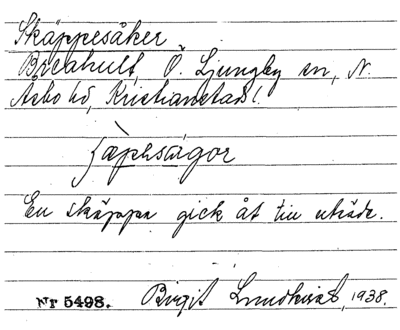 Skäppesåker
Bredhult, Ö. Ljungby sn, N.
Åsbo hd, Kristianstads l.
ʃæpesågor
En skäppa gick åt till utsäde.
Nr 5498. Birgit Lundkvist, 1938.